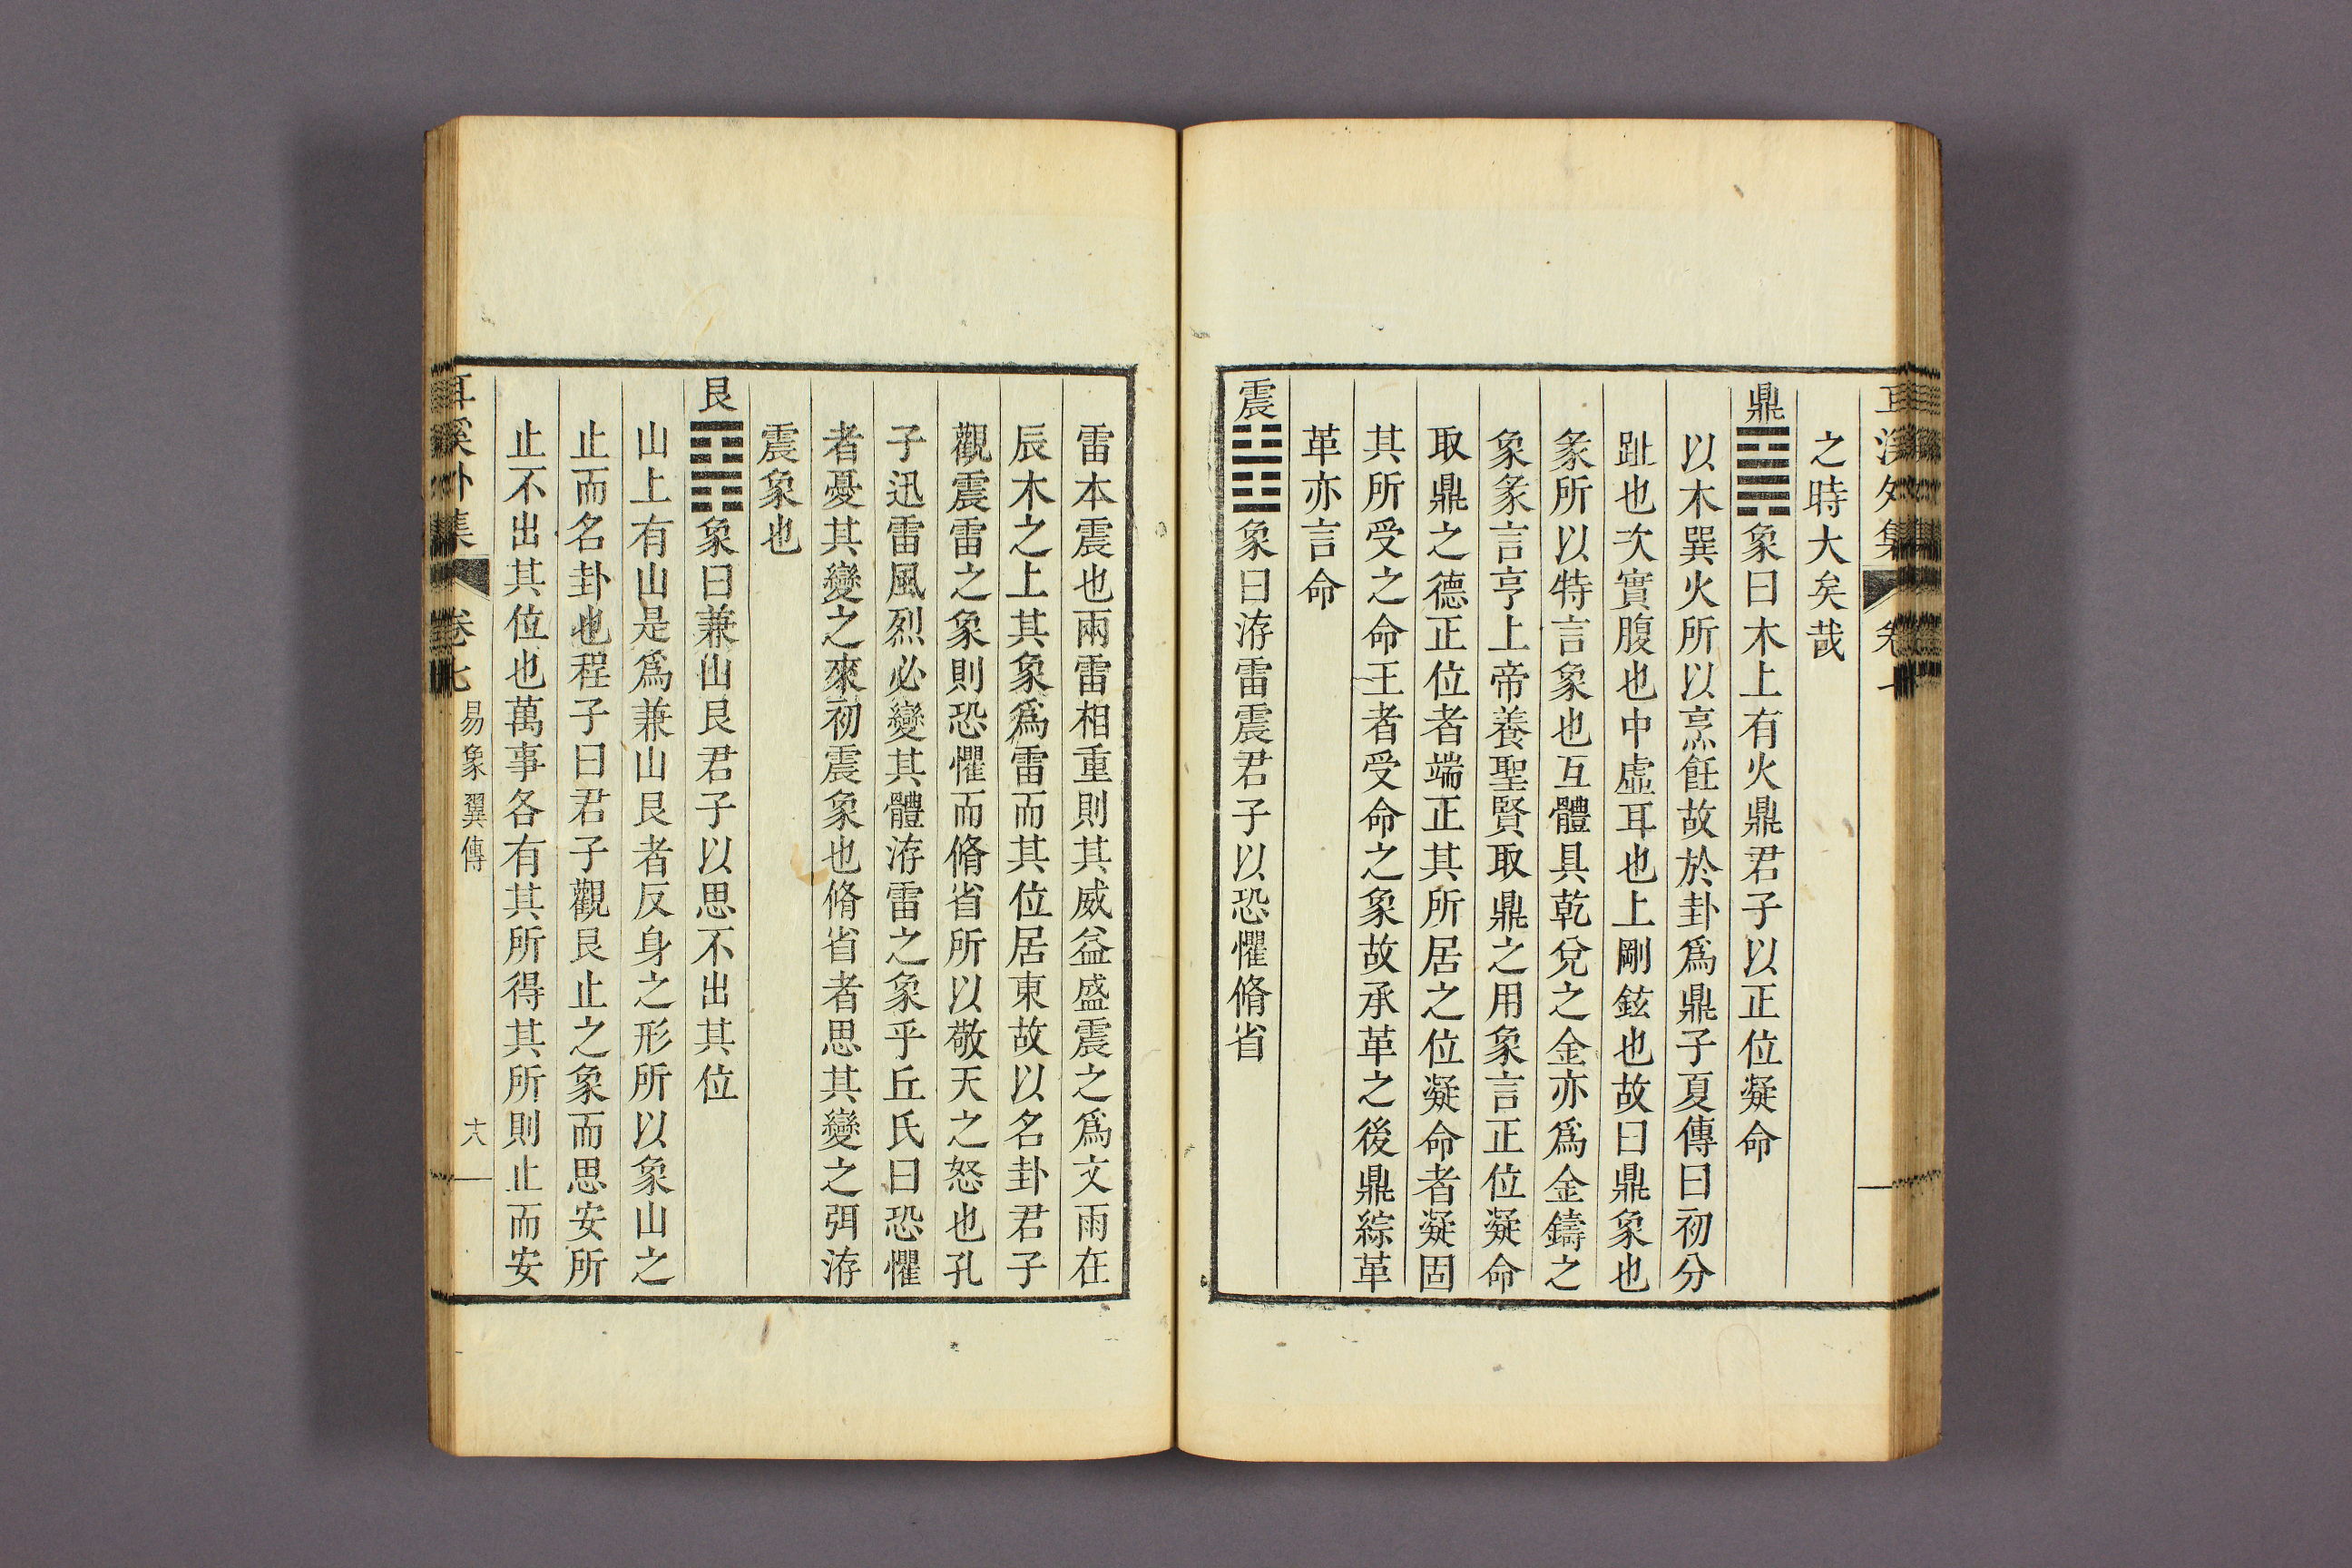 之時大矣哉
鼎䷱象曰木上有火鼎君子以正位凝命
以木巽火所以烹飪故於卦爲鼎子夏傳曰初分
趾也次實腹也中虛耳也上剛鉉也故曰鼎象也
彖所以特言象也互體具乾兌之金亦爲金鑄之
象彖言亨上帝養聖賢取鼎之用象言正位凝命
取鼎之德正位者端正其所居之位凝命者凝固
其所受之命王者受命之象故承革之後鼎綜革
革亦言命
震䷲象曰洊雷震君子以恐懼脩省
雷本震也兩雷相重則其威益盛震之爲文雨在
辰木之上其象爲雷而其位居東故以名卦君子
觀震雷之象則恐懼而脩省所以敬天之怒也孔
子迅雷風烈必變其體洊雷之象乎丘氏曰恐懼
者憂其變之來初震象也脩省者思其變之弭洊
震象也
艮䷳象曰兼山艮君子以思不出其位
山上有山是爲兼山艮者反身之形所以象山之
止而名卦也程子曰君子觀艮止之象而思安所
止不出其位也萬事各有其所得其所則止而安
耳溪外集 卷七 易象翼傳 十八